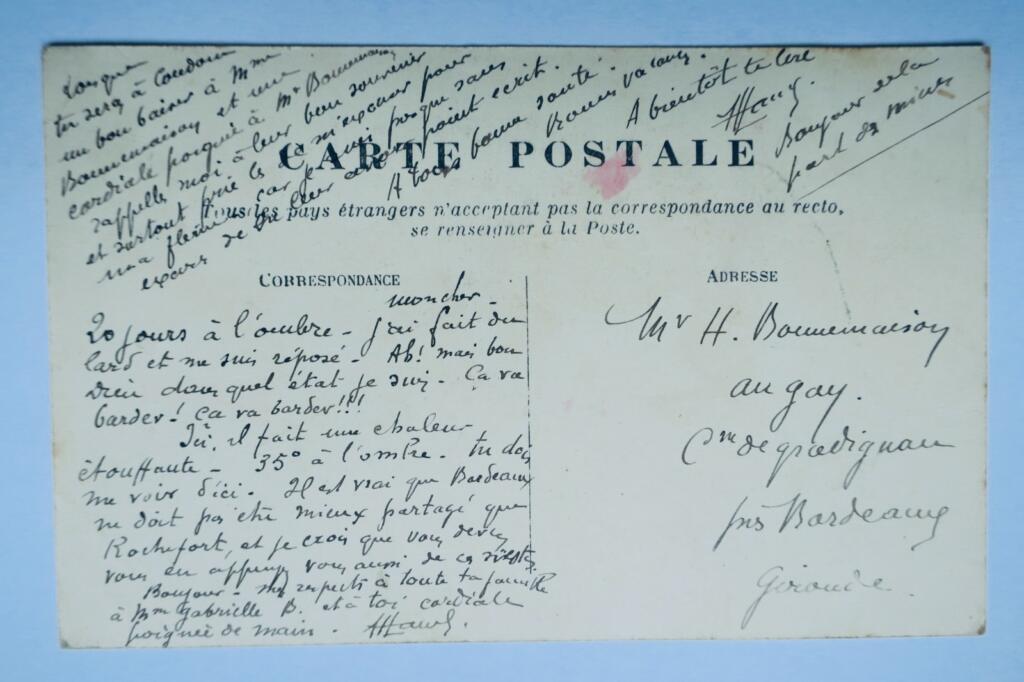 Lorsque
tu seras à Condom
un bon baiser à Mme
Bonnemaison et une
cordiale poignée à Mr Bonnemaison
rappelle moi à leur bon souvenir
et surtout prie les de m'excuser pour
ma flemme car je suis presque sans
excuse de ne leur avoir point écrit.
A tous bonne santé.
Bonnes vacances.
A bientôt te lire
Bonjour de la
part des miens
CARTE POSTALE
Tous les pays étrangers n'acceptant pas la correspondance au recto,
se renseigner à la Poste.
CORRESPONDANCE
mon cher -
20 jours à l'ombre - J'ai fait du
lard et me suis reposé - Ah! mais bon
Dieu dans quel état je suis - Ça va
barder! Ça va barder!!!
Ici, il fait une chaleur
étouffante - 35° à l'ombre - tu dois
me voir d'ici - Il est vrai que Bordeaux
ne doit pas être mieux partagé que
Rochefort, et je crois que vous devez
vous en vous aussi de ces
Bonjour - mes respects à toute ta famille
à Mme Gabrielle B. et à toi cordiale
poignée de main -
ADRESSE
Mr H. Bonnemaison
au gay.
Cne de gradignan
près Bordeaux
Gironde.